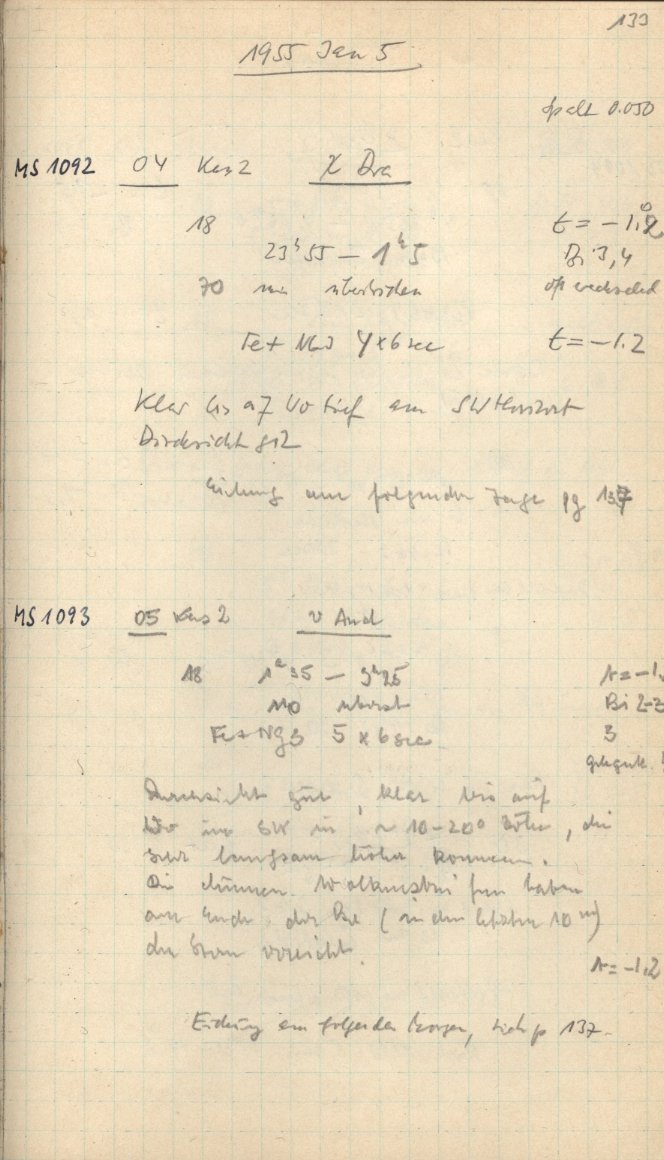 133
1955 Jan 5
Spalt 0.050
MS 1092 04 Kas 2 χ Dra
18 t = -1.
23h 55 - 1h 5 Bi 3,4
70 min oft wechselnd
Fe + NG3 4 x 6 sec t = -1.2
Klar bis auf Wo tief am SW Horizont
Durchsicht gut
Eichung am folgenden pg
MS 1093 05 Kas 2 υ And
18 1h 35 - 3h 25 t = -1.
110 überst Bi 2-
Fe + NG3 5 x 6 sec 3
Durchsicht gut, klar bis auf
Wo im SW in ~ 10-20° Höhe, die
sehr langsam höher kommen.
Die dünnen haben
am Ende der (in den letzten 10 m)
den Stern erreicht.
t = -1.2
Eichung am folgenden Morgen, sieh p 137.